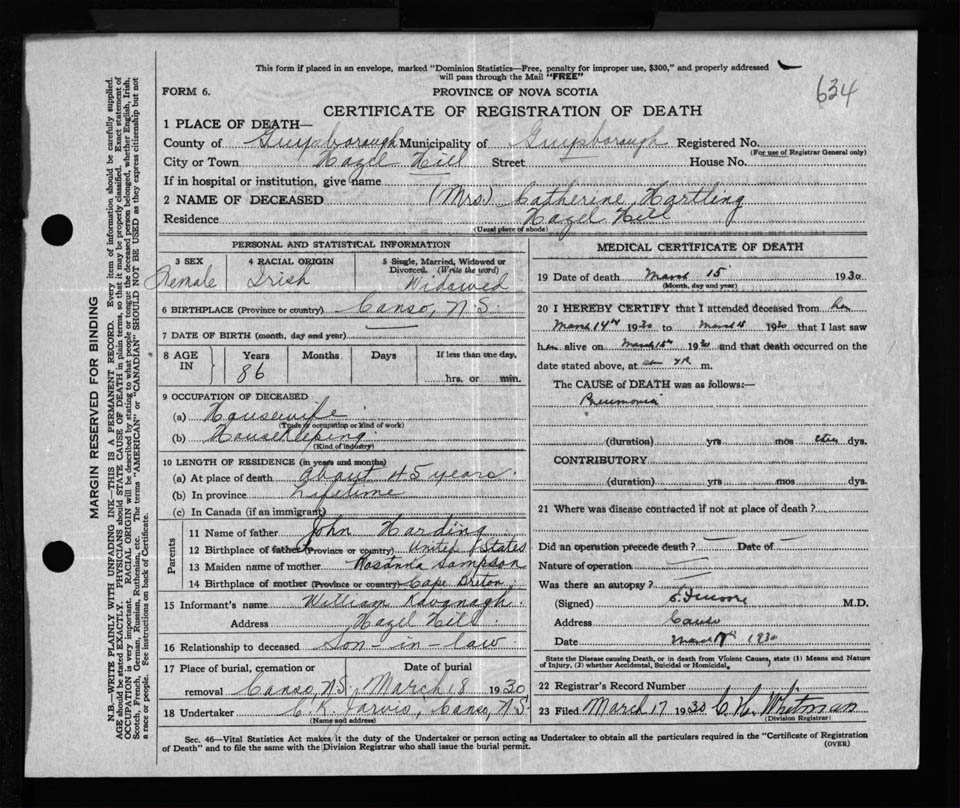 This form if placed in an envelope, marked "Dominion Statistics—Free, penalty for improper use, $300," and properly addressed
will pass through the Mail "FREE"
634
FORM 6.
PROVINCE OF NOVA SCOTIA
CERTIFICATE OF REGISTRATION OF DEATH
1 PLACE OF DEATH—
County of Guysborough Municipality of Guysborough Registered No.
(For use of Registrar General only)
City or Town Hazel Hill Street House No.
If in hospital or institution, give name
2 NAME OF DECEASED (Mrs.) Catherine Hartling
Residence Hazel Hill
(Usual place of abode)
PERSONAL AND STATISTICAL INFORMATION
3 SEX
Female
4 RACIAL ORIGIN
Irish
5 Single, Married, Widowed or
Divorced. (Write the word)
Widowed
6 BIRTHPLACE (Province or country) Canso, N.S.
7 DATE OF BIRTH (month, day and year)
8 AGE IN
Years Months Days If less than one day,
86 hrs. or min.
9 OCCUPATION OF DECEASED
(a) Housewife
(Trade or occupation or kind of work)
(b) Housekeeping
(Kind of industry)
10 LENGTH OF RESIDENCE (in years and months)
(a) At place of death about 45 years.
(b) In province Lifetime
(c) In Canada (if an immigrant)
Parents
11 Name of father John Harding
12 Birthplace of father (Province or country) United States
13 Maiden name of mother Rosanna Sampson
14 Birthplace of mother (Province or country) Cape Breton
15 Informant's name William Kavanagh.
Address Hazel Hill
16 Relationship to deceased Son-in-law
17 Place of burial, cremation or Date of burial
removal Canso, N.S. March 18 1930
18 Undertaker Jarvis, Canso, N.S.
(Name and address)
MEDICAL CERTIFICATE OF DEATH
19 Date of death March 15 1930
(Month, day and year)
20 I HEREBY CERTIFY that I attended deceased from
March 14th 1930 to March 15 1930 that I last saw
her alive on March 15th 1930 and that death occurred on the
date stated above, at m.
The CAUSE of DEATH was as follows:—
Pneumonia
(duration) yrs mos dys.
CONTRIBUTORY
(duration) yrs mos dys.
21 Where was disease contracted if not at place of death ?
Did an operation precede death ? — Date of —
Nature of operation —
Was there an autopsy ? —
(Signed) M.D.
Address Canso
Date March 1930
State the Disease causing Death, or in death from Violent Causes, state (1) Means and Nature
of Injury, (2) whether Accidental, Suicidal or Homicidal.
22 Registrar's Record Number
23 Filed March 17 1930 C. H. Whitman
(Division Registrar)
Sec. 46—Vital Statistics Act makes it the duty of the Undertaker or person acting as Undertaker to obtain all the particulars required in the "Certificate of Registration
of Death" and to file the same with the Division Registrar who shall issue the burial permit.
(OVER)
MARGIN RESERVED FOR BINDING
N.B.—WRITE PLAINLY WITH UNFADING INK—THIS IS A PERMANENT RECORD. Every item of information should be carefully supplied.
AGE should be stated EXACTLY. PHYSICIANS should STATE CAUSE OF DEATH in plain terms, so that it may be properly classified. Exact statement of
OCCUPATION is very important. RACIAL ORIGIN will be described by stating to what people or tongue the deceased person belonged, whether English, Irish,
Scotch, French, German, Russian, Ruthenian, etc. The terms "AMERICAN" or "CANADIAN" SHOULD NOT BE USED as they express citizenship but not
a race or people. See instructions on back of Certificate.